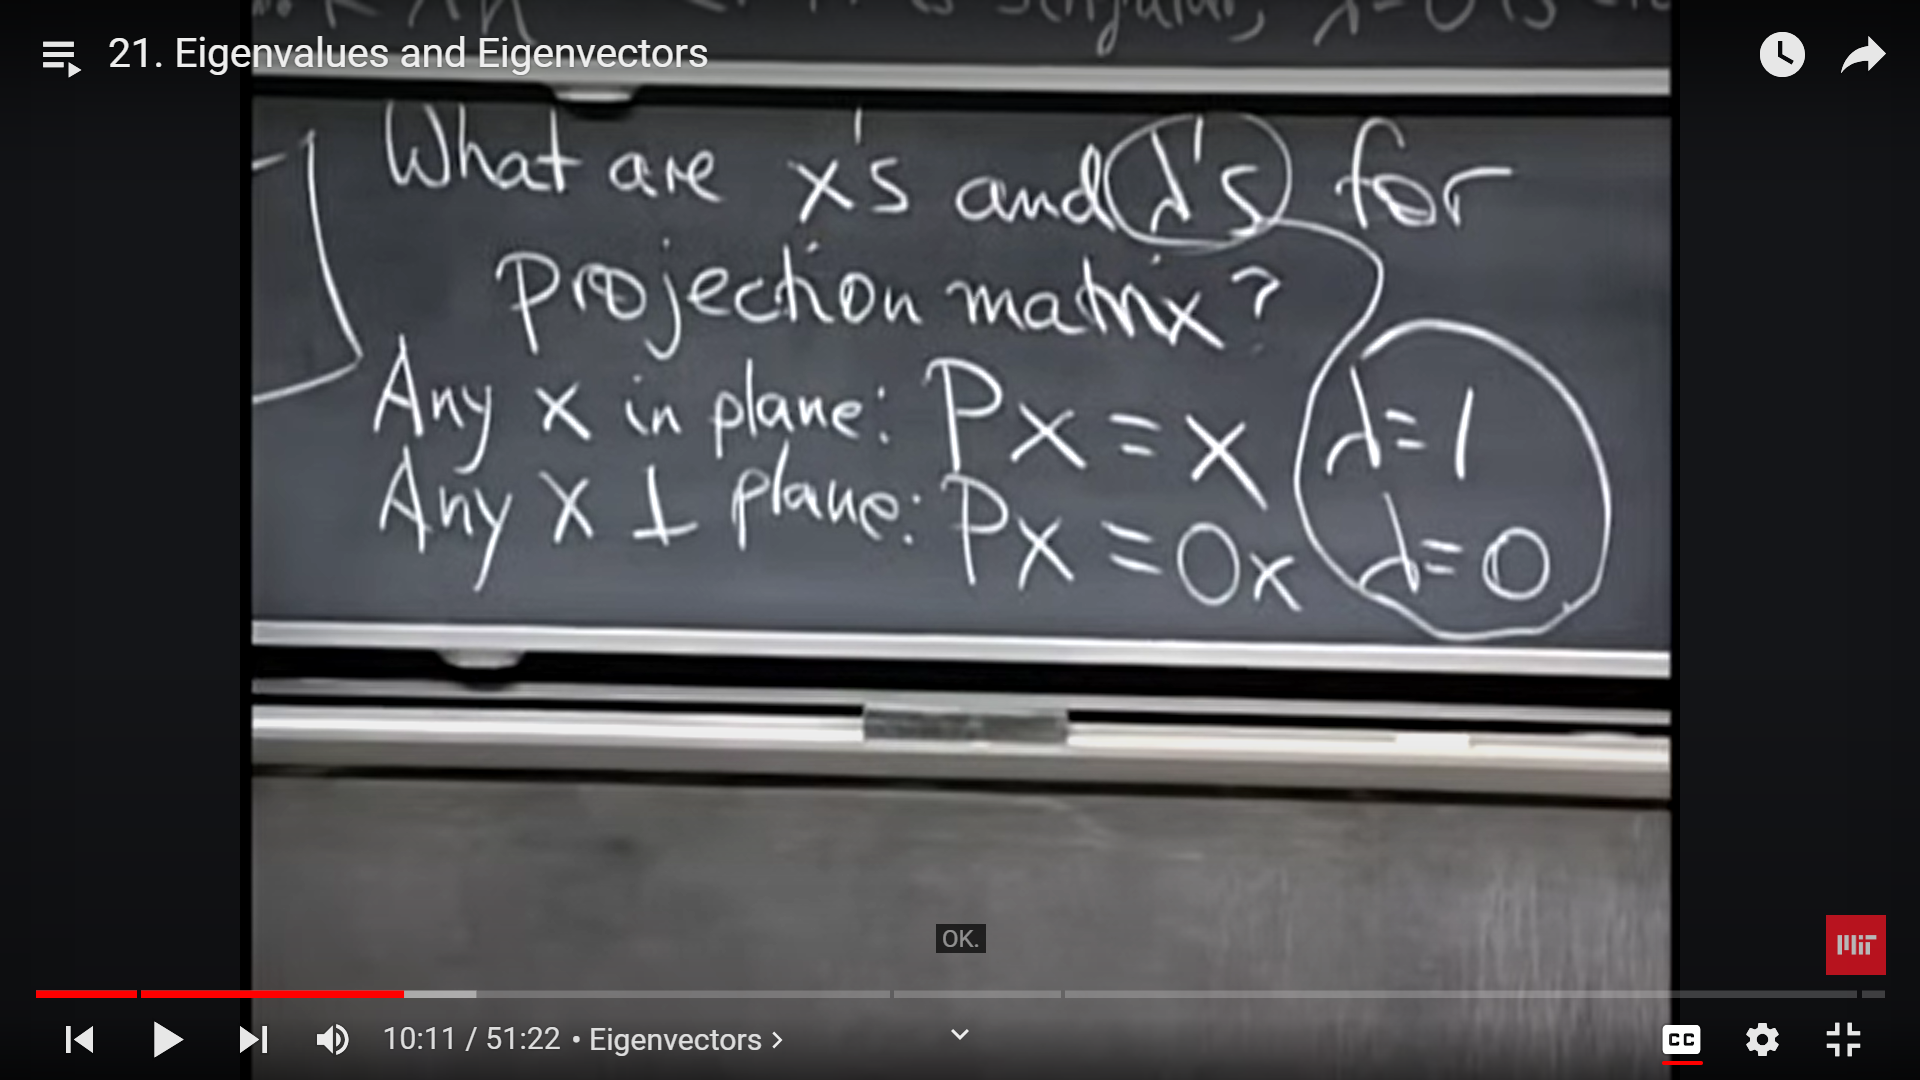 21. Eigenvalues and Eigenvectors
is singular, λ=0 is
What are x's and λ's for
projection matrix?
Any x in plane: Px = x λ=1
Any x ⊥ plane: Px = 0x λ=0
OK.
MIT
10:11 / 51:22 • Eigenvectors >
CC